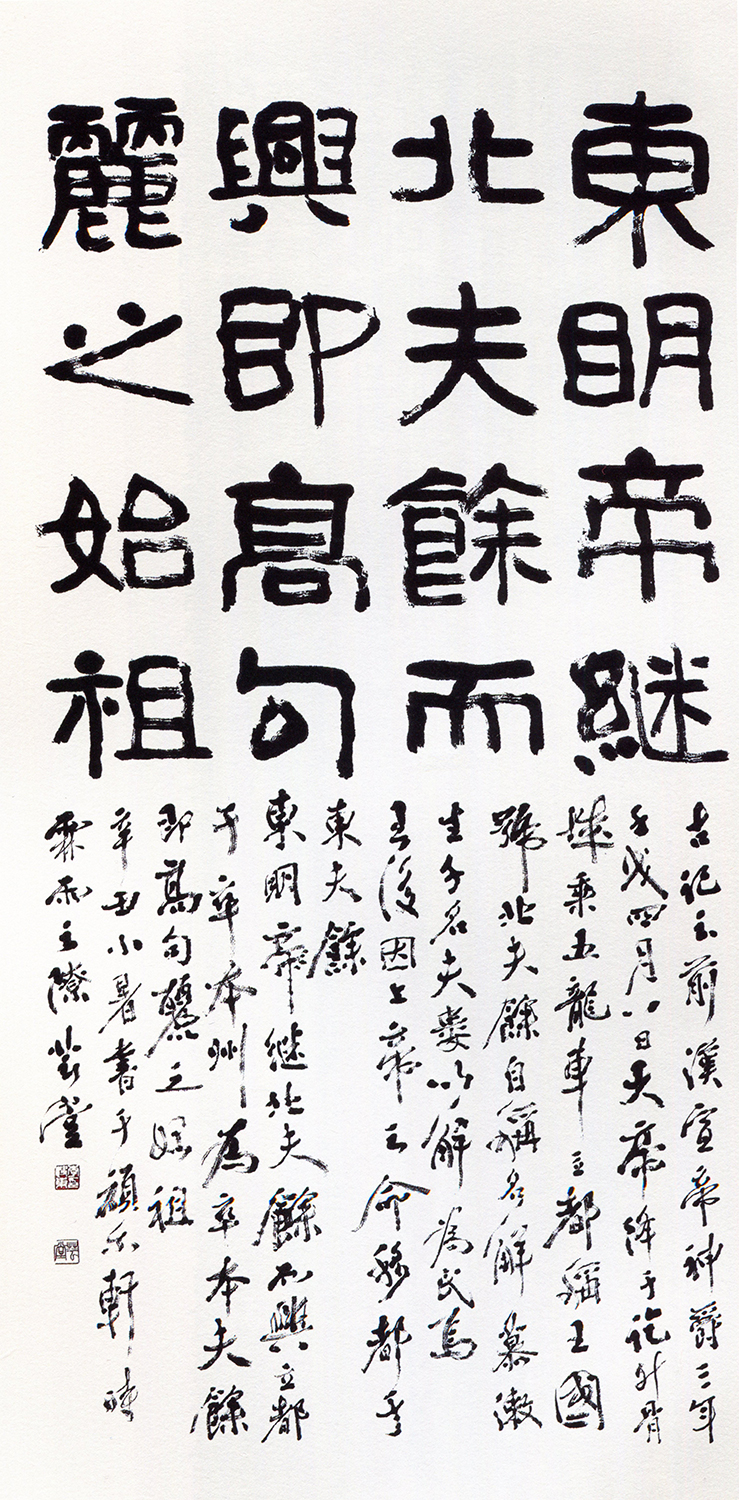 東明帝繼
北夫餘而
興即高句
麗之始祖
古記云前漢宣帝神爵三年
壬戌四月八日天帝降于訖升骨
城乘五龍車立都稱王國
號北夫餘自稱名解慕漱
生子名夫婁以解為氏焉
王後因上帝之命移都于
東夫餘
東明帝繼北夫餘而興立都
于卒本州為卒本夫餘
即高句麗之始祖
辛丑小暑書于 軒
霖雨 堂